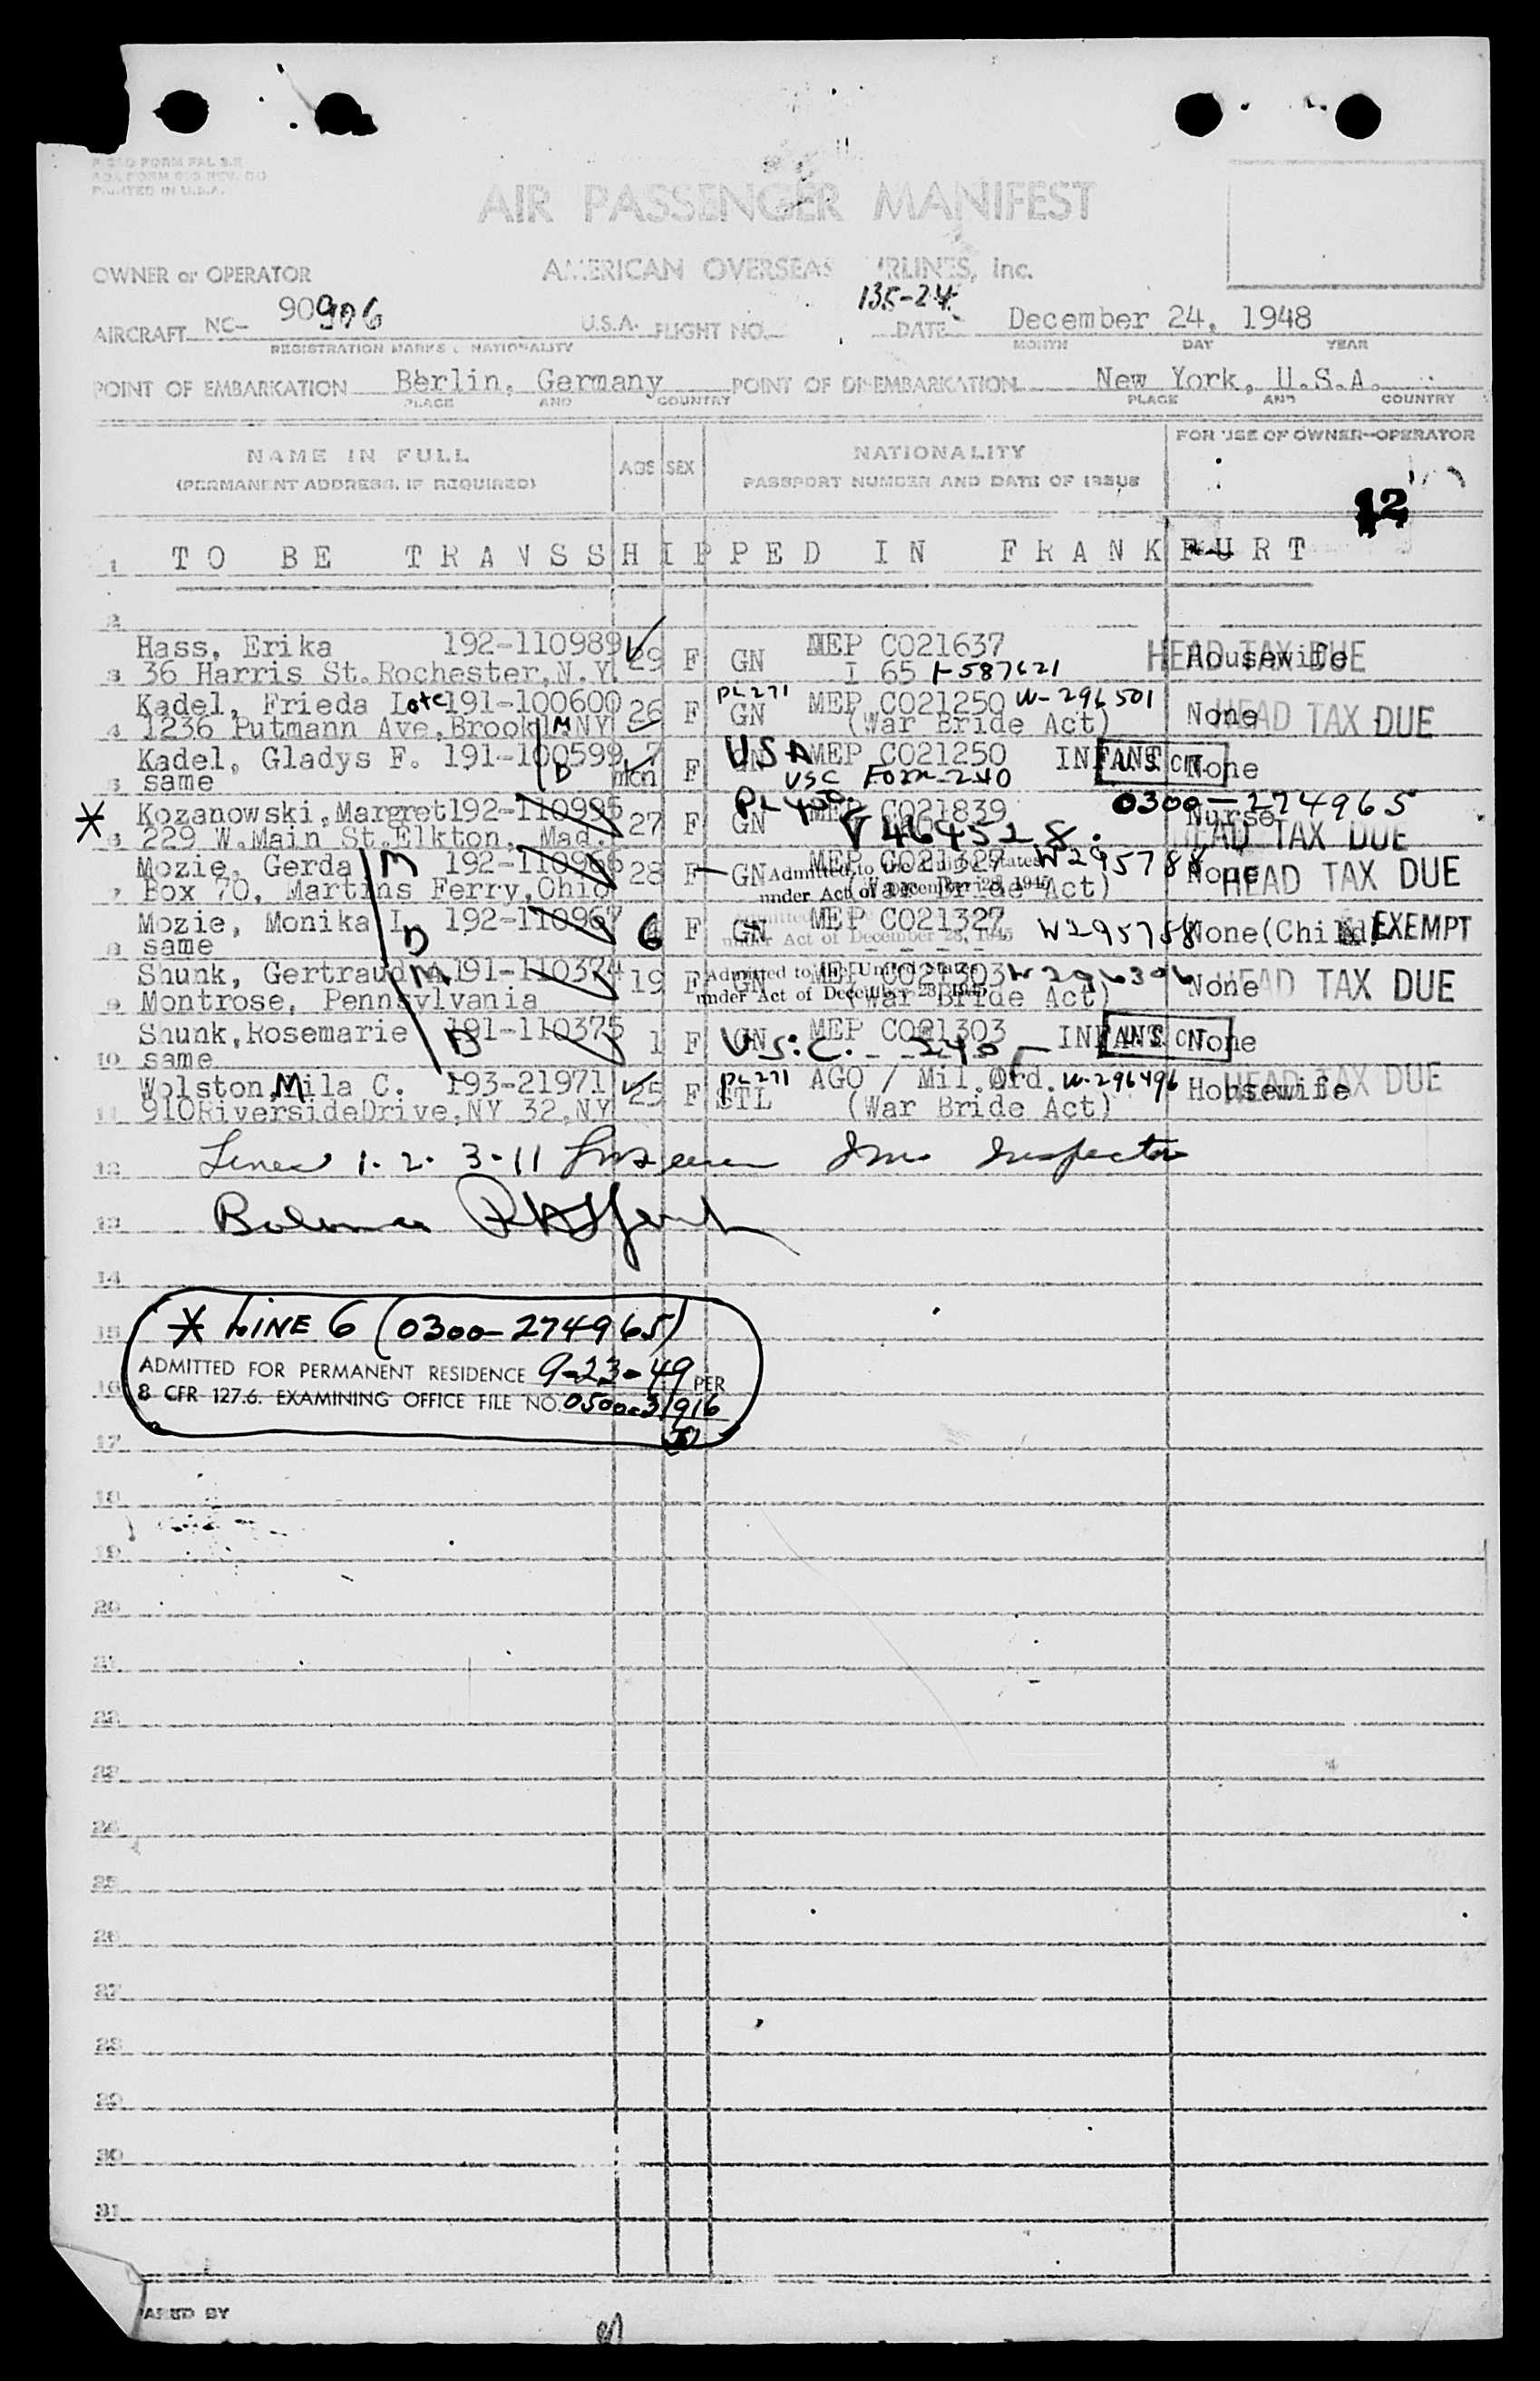 PRINTED IN U.S.A.
AIR PASSENGER MANIFEST
OWNER or OPERATOR AMERICAN OVERSEAS AIRLINES, Inc.
135-24
AIRCRAFT NC- 90906 U.S.A. FLIGHT NO. DATE December 24, 1948
REGISTRATION MARKS & NATIONALITY MONTH DAY YEAR
POINT OF EMBARKATION Berlin, Germany POINT OF DISEMBARKATION New York, U.S.A.
PLACE AND COUNTRY PLACE AND COUNTRY
NAME IN FULL AGE SEX NATIONALITY FOR USE OF OWNER-OPERATOR
(PERMANENT ADDRESS, IF REQUIRED) PASSPORT NUMBER AND DATE OF ISSUE
12
1 TO BE TRANSSHIPPED IN FRANKFURT
2
Hass, Erika 192-110989 29 F GN MEP C021637 Housewife HEAD TAX DUE
3 36 Harris St. Rochester, N.Y. I 65 I-587621
Kadel, Frieda Lote 191-100600 26 F PL271 GN MEP C021250 W-296501 None HEAD TAX DUE
4 1236 Putmann Ave, Brookl M NY (War Bride Act)
Kadel, Gladys F. 191-100599 7 mon F USA GN MEP C021250 INFANT None
5 same D USC Form-240
* Kozanowski, Margret 192-110995 27 F GN MEP C021839 0300-274965 Nurse
6 229 W. Main St. Elkton, Mad. V464528. HEAD TAX DUE
Mozie, Gerda M 192-110966 28 F GN MEP C021327 W295788 None HEAD TAX DUE
7 Box 70, Martins Ferry, Ohio Admitted to the United States under Act of December 28, 1945 (War Bride Act)
Mozie, Monika I. 192-110967 6 F GN MEP C021327 W295758 None(Child) EXEMPT
8 same D under Act of December 28, 1945
Shunk, Gertraud A. 191-110374 19 F GN MEP C021303 W296396 None HEAD TAX DUE
9 Montrose, Pennsylvania M Admitted to the United States under Act of December 28, 1945 (War Bride Act)
Shunk, Rosemarie 191-110375 1 F GN MEP C021303 INFANT None
10 same D U.S.C. 240
Wolston, Mila C. 193-21971 25 F PL271 STL AGO / Mil. Ord. W-296496 Housewife HEAD TAX DUE
11 910 Riverside Drive, NY 32, NY (War Bride Act)
12 Lines 1. 2. 3-11 Imm Inspector
13
14
15 * LINE 6 (0300-274965)
ADMITTED FOR PERMANENT RESIDENCE 9-23-49 PER
16 8 CFR 127.6. EXAMINING OFFICE FILE NO. 0500-31916
17
18
19
20
21
22
23
24
25
26
27
28
29
30
31
ARED BY